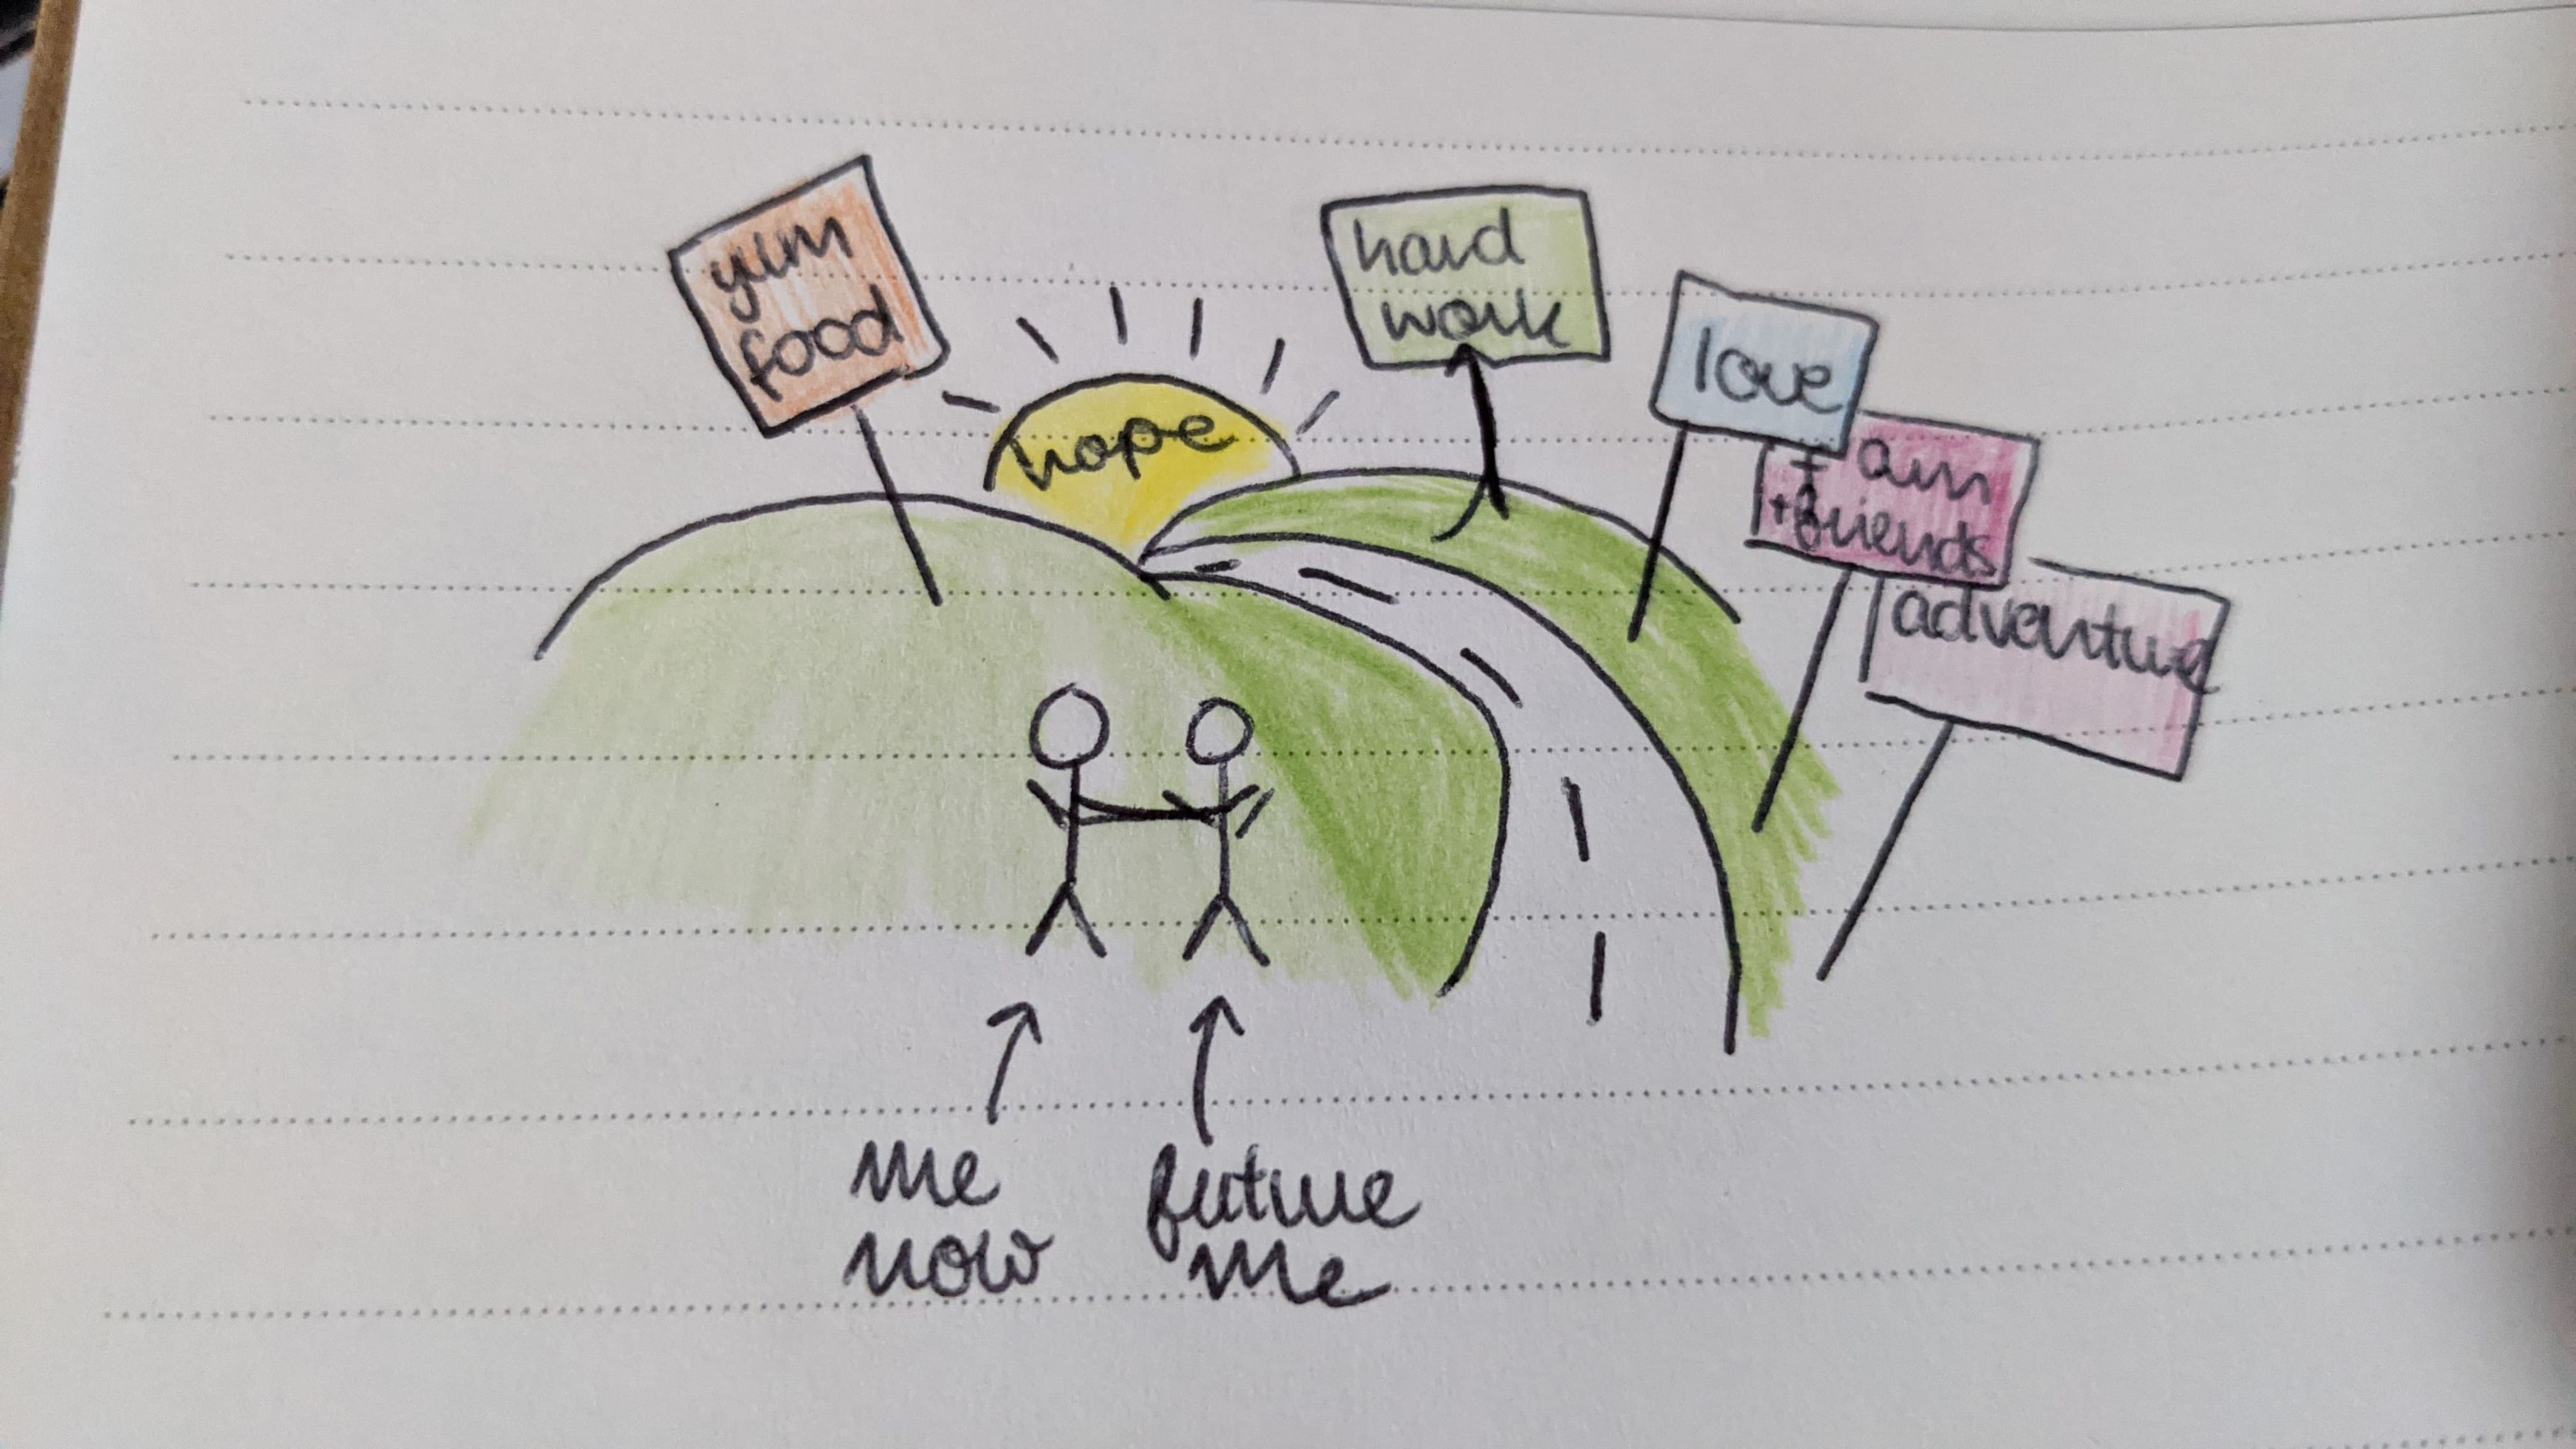 yum
food
hope
hard
work
love
Fam
+friends
adventure
me
now
future
me